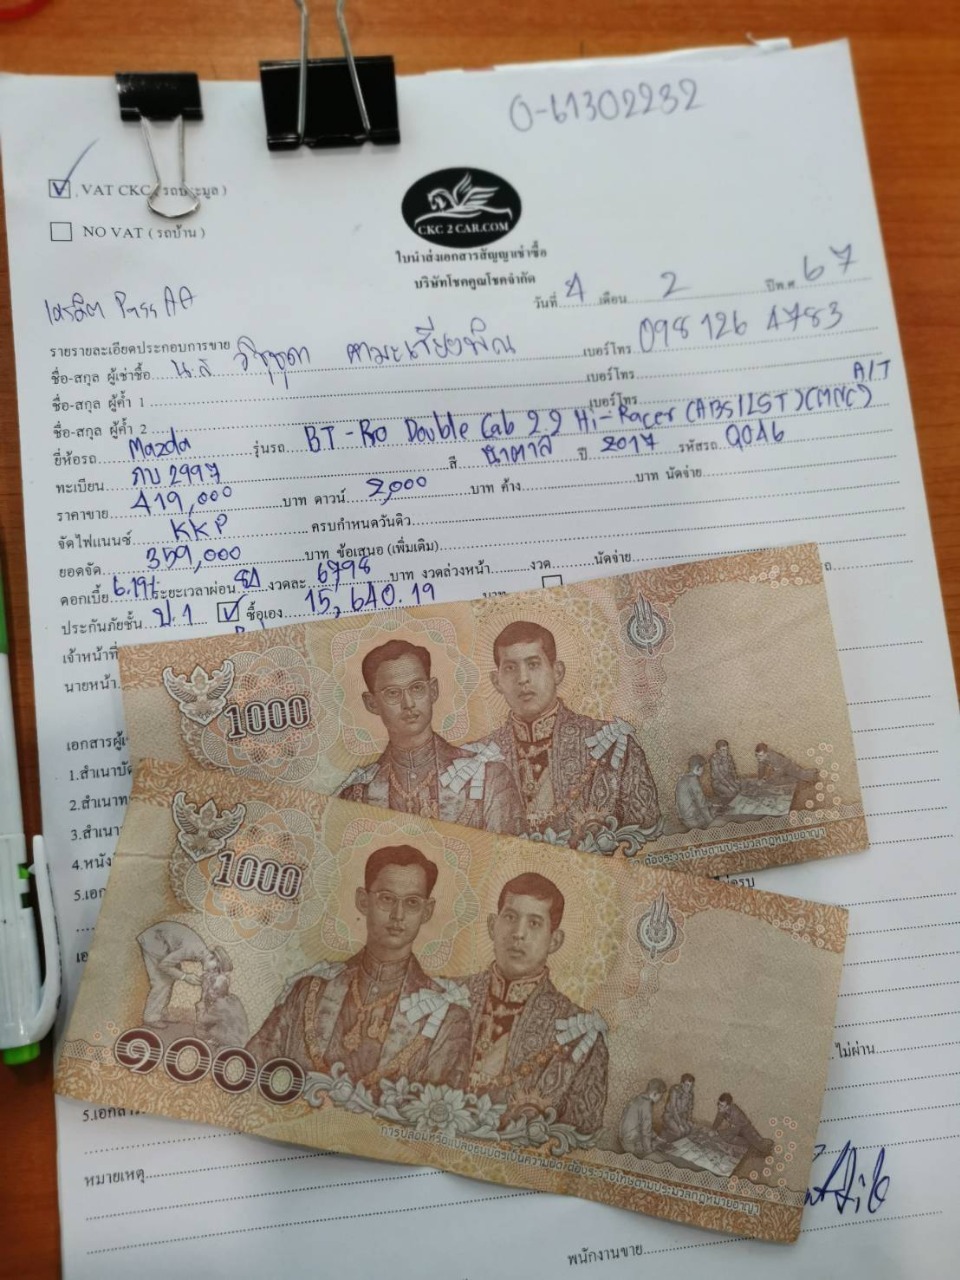 0-61302232
VAT CKC (รถประมูล)
NO VAT (รถบ้าน)
CKC 2 CAR.COM
ใบนำส่งเอกสารสัญญาเช่าซื้อ
บริษัทโชคคูณโชคจำกัด
วันที่ 4 เดือน 2 ปีพ.ศ. 67
เครดิต Pass AA
รายรายละเอียดประกอบการขาย
ชื่อ-สกุล ผู้เช่าซื้อ น.ส วิชุชุดา เบอร์โทร 098 126 4783
ชื่อ-สกุล ผู้ค้ำ 1 เบอร์โทร
ชื่อ-สกุล ผู้ค้ำ 2 เบอร์โทร
ยี่ห้อรถ Mazda รุ่นรถ BT-Pro Double Cab 2.2 Hi-Racer (ABS/LST) (MNC) A/T
ทะเบียน กบ 2997 สี น้ำตาล ปี 2017 รหัสรถ Q046
ราคาขาย 419,000 บาท ดาวน์ 2,000 บาท ค้าง บาท นัดจ่าย
จัดไฟแนนซ์ KKP ครบกำหนดวันดิว
ยอดจัด 359,000 บาท ข้อเสนอ (เพิ่มเติม)
ดอกเบี้ย 6.19% ระยะเวลาผ่อน 84 งวดละ 6798 บาท งวดล่วงหน้า งวด นัดจ่าย
ประกันภัยชั้น ป.1 ซื้อเอง 15,640.19
เจ้าหน้าที่
นายหน้า
1000
เอกสารผู้
1.สำเนาบัต
2.สำเนาท
3.สำเนา
4.หนัง
5.เอก
ต้องระวางโทษตามประมวลกฎหมายอาญา
1000
๑๐๐๐
ไม่ผ่าน
5.เอกสาร
การปลอมหรือแปลงธนบัตรเป็นความผิดต้องระวางโทษตามประมวลกฎหมายอาญา
หมายเหตุ
พนักงานขาย